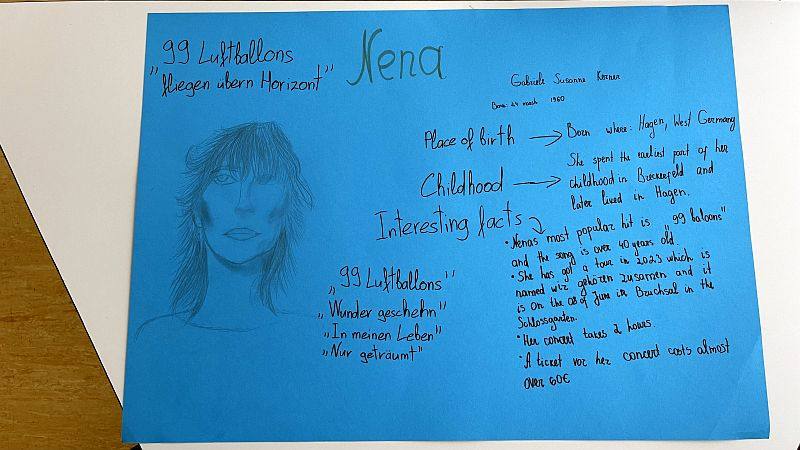 "99 Luftballons
fliegen übern Horizont"
Nena
Gabriele Susanne Kerner
Born: 24 march 1960
Place of birth → Born where: Hagen, West Germany
Childhood → She spent the earliest part of her
childhood in Breckerfeld and
later lived in Hagen.
Interesting facts
• Nenas most popular hit is "99 baloons"
and the song is over 40 years old.
• She has got a tour in 2023 which is
named wir gehören zusamen and it
is on the 08 of June in Bruchsal in the
Schlossgarten.
• Her concert takes 2 hours.
• A ticket vor her concert costs almost
over 60€
„99 Luftballons"
„Wunder geschehn"
„In meinen Leben"
„Nur geträumt"